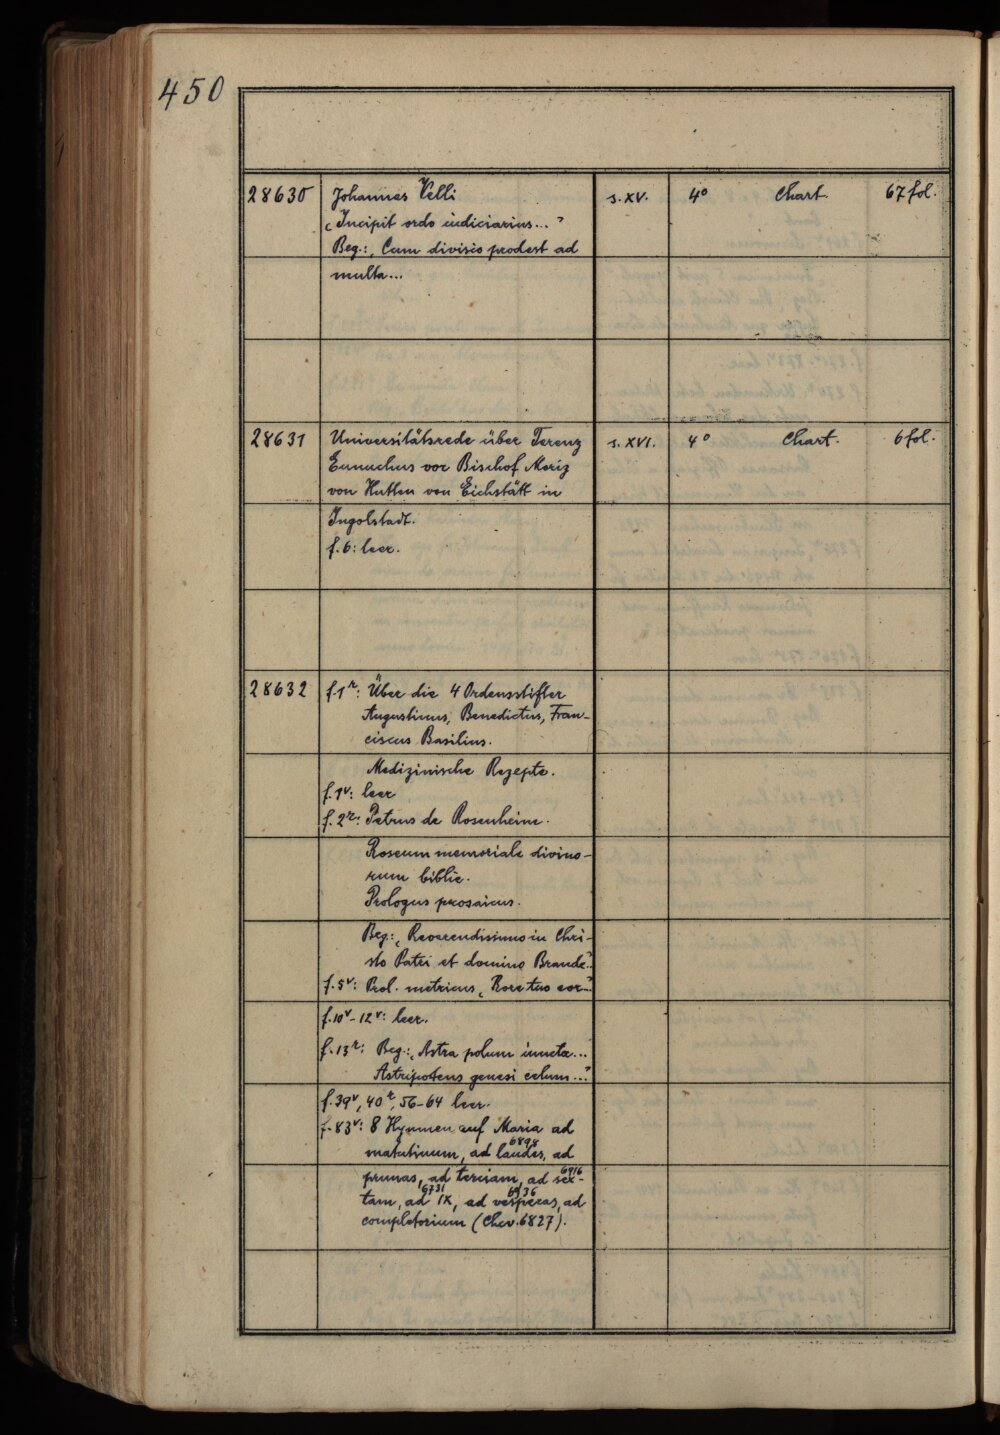 450
28630 Johannes Velli s. XV. 4° Chart. 67 fol.
„Incipit ordo iudiciarius..."
Beg.: „Cum divisio prodest ad
multa...
28631 Universitätsrede über Terenz s. XVI. 4° Chart. 6 fol.
Eunuchus vor Bischof Moriz
von Hutten von Eichstätt in
Ingolstadt.
f. 6: leer.
28632 f. 1r: Über die 4 Ordensstifter
Augustinus, Benedictus, Fran-
ciscus Basilius.
Medizinische Rezepte.
f. 1v: leer
f. 2r: Petrus de Rosenheim.
Roseum memoriale divino-
rum biblie.
Prologus prosaicus.
Beg.: „Reverendissimo in Chri-
sto Patri et domino Brande.."
f. 5v: Prol. metricus „Rore tuo cor..."
f. 10v-12v: leer.
f. 13r: Beg.: „Astra polum iuncta...
Astripotens genesi celum..."
f. 39v, 40r, 56-64 leer.
f. 83v: 8 Hymnen auf Maria ad
6898
matutinum, ad laudes, ad
6916
primas, ad terciam, ad sex-
6731 6936
tam, ad IX, ad vesperas, ad
completorium (Chev. 6827).